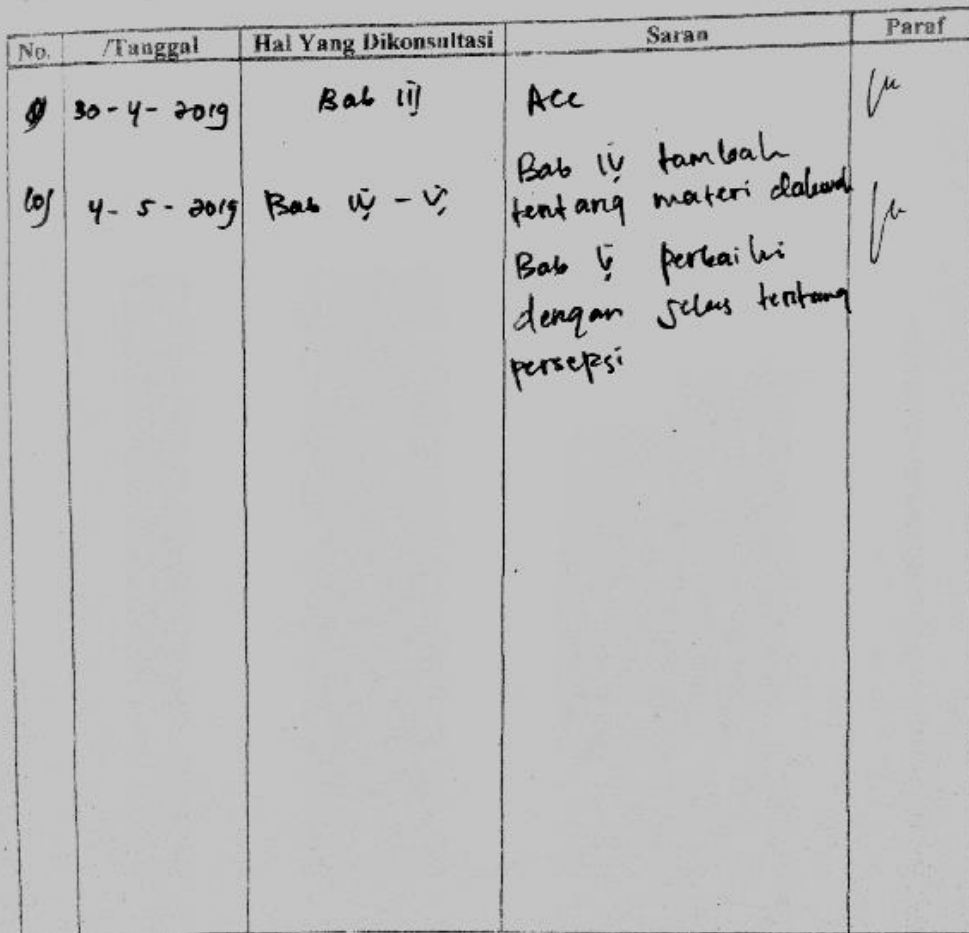 No. /Tanggal Hal Yang Dikonsultasi Saran Paraf
30-4-2019 Bab III Acc
Bab IV tambah
10) 4-5-2019 Bab IV - V tentang materi dakwah
Bab V perbaiki
dengan jelas tentang
persepsi